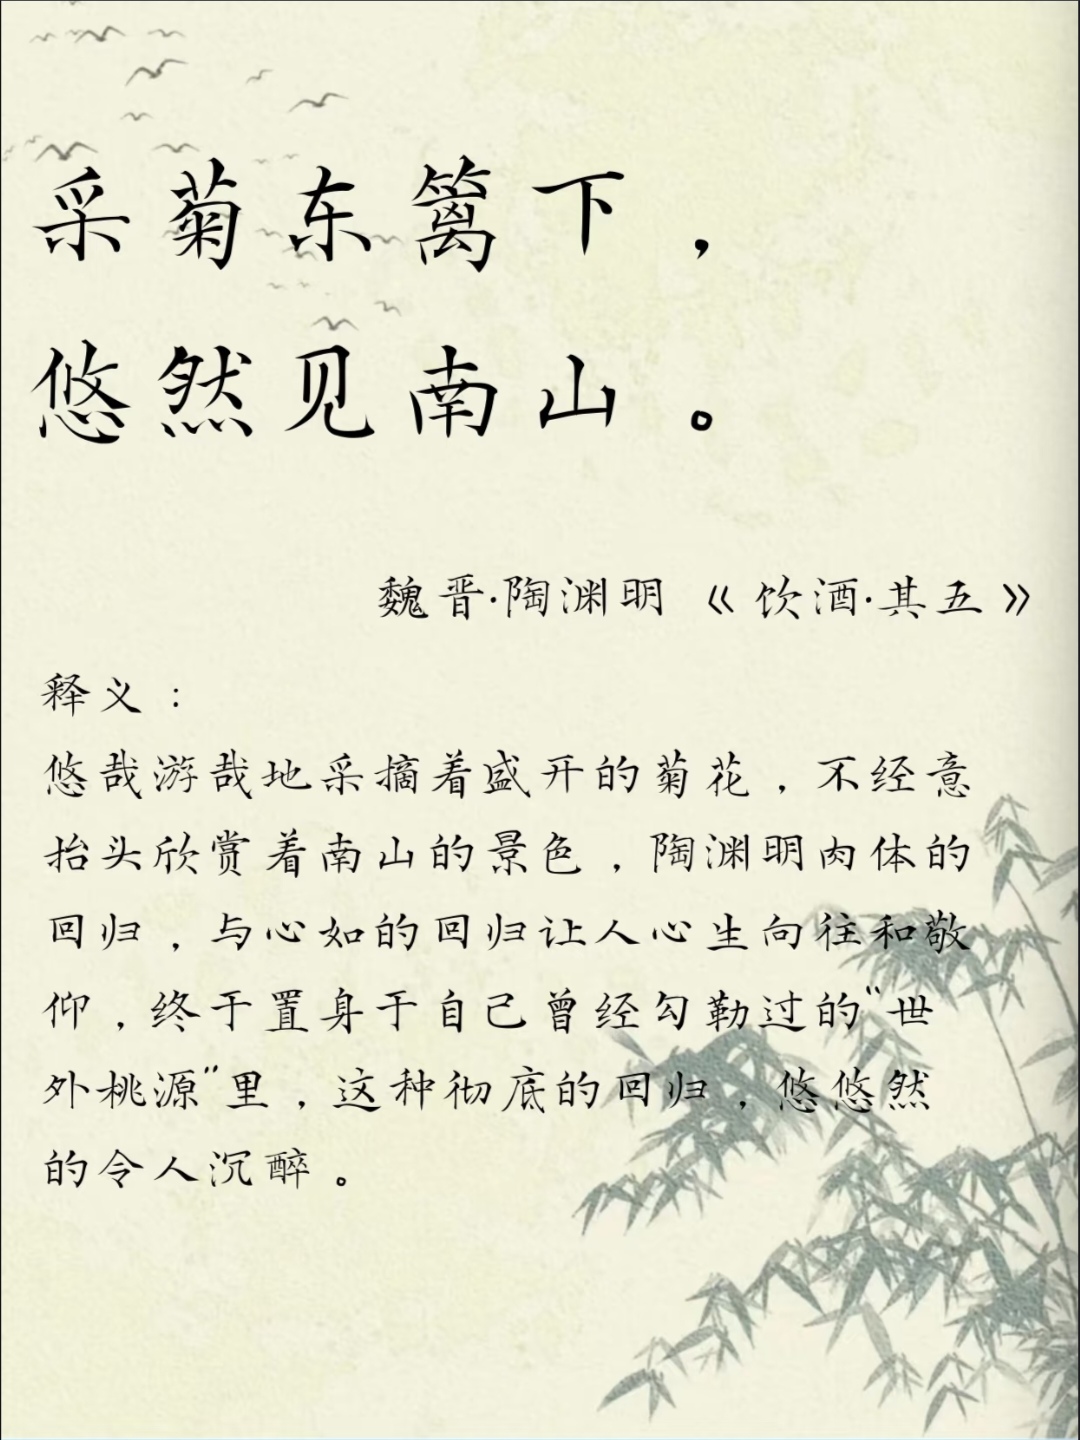 采菊东篱下，
悠然见南山。
魏晋·陶渊明《饮酒·其五》
释义：
悠哉游哉地采摘着盛开的菊花，不经意
抬头欣赏着南山的景色，陶渊明肉体的
回归，与心如的回归让人心生向往和敬
仰，终于置身于自己曾经勾勒过的“世
外桃源”里，这种彻底的回归，悠悠然
的令人沉醉。